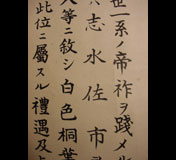 世一系ノ帝祚ヲ踐メル
志水佐市
八等ニ敘シ白色桐葉
此位ニ屬スル禮遇及